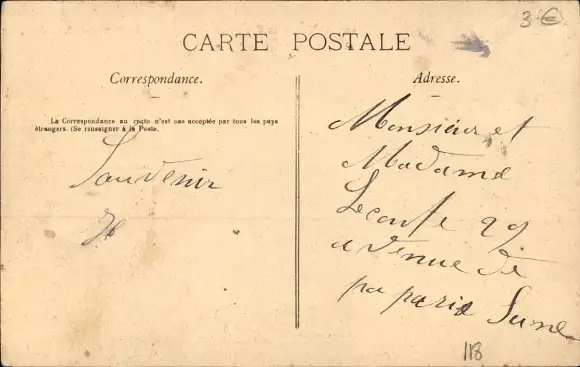 3 €
CARTE POSTALE
Correspondance.
Adresse.
La Correspondance au recto n'est pas acceptée par tous les pays
étrangers. (Se renseigner à la Poste.
Souvenir
Monsieur et
Madame
Leconte 29
avenue de
paris
118